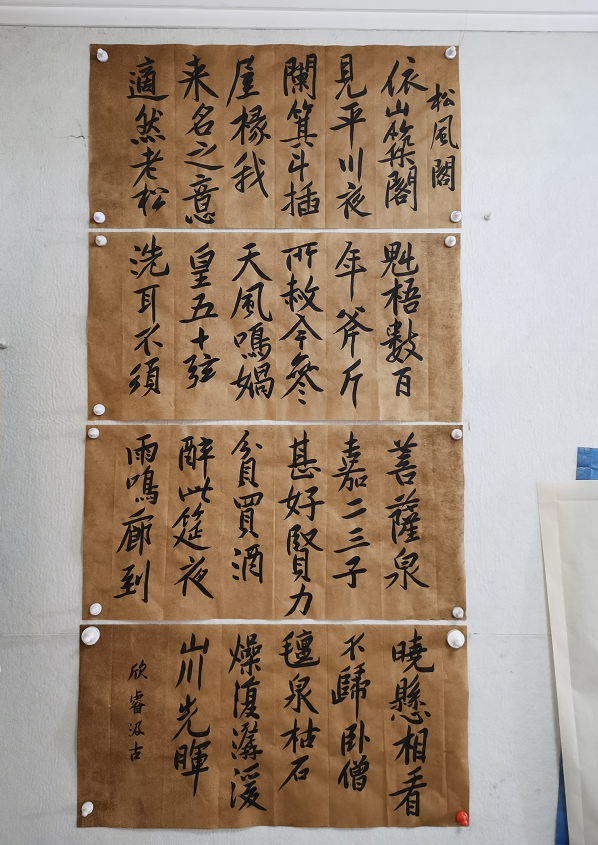 松風閣
依山築閣
見平川夜
闌箕斗插
屋椽我
来名之意
適然老松
魁梧數百
年斧斤
所赦今參
天風鳴媧
皇五十弦
洗耳不須
菩薩泉
嘉二三子
甚好賢力
貧買酒
醉此筵夜
雨鳴廊到
曉懸相看
不歸卧僧
氊泉枯石
燥復潺湲
山川光暉
欣睿汲古